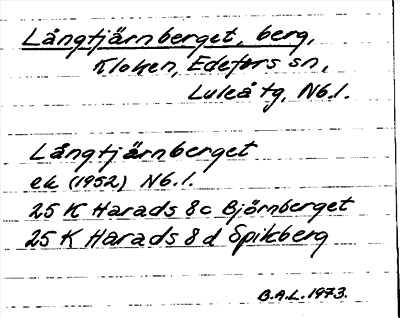 Långtjärnberget, berg,
Kloken, Edefors sn,
Luleå tg, Nb.l.
Långtjärnberget
ek (1952) Nb.l.
25 K Harads 8c Björnberget
25 K Harads 8d Spikberg
B.A.L. 1973.